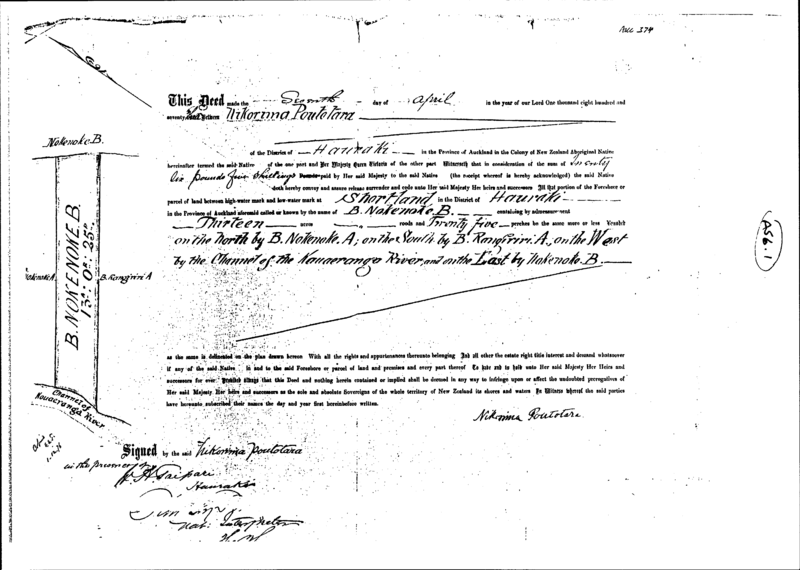 A56.1
Nokenoke B.
B. NOKENOKE B.
13ᵃ 0ʳ 25ᵖ
Nokenoke A
B. Rangiriri A
Channel of
Kauaeranga River
This Deed made the Seventh day of April in the year of our Lord One thousand eight hundred and
seventy Between Nikorima Poutotara
of the District of Hauraki in the Province of Auckland in the Colony of New Zealand Aboriginal Native
hereinafter termed the said Native of the one part and Her Majesty Queen Victoria of the other part Witnesseth that in consideration of the sum of Twenty
Six pounds five Shillings paid by Her said Majesty to the said Native (the receipt whereof is hereby acknowledged) the said Native
doth hereby convey and assure release surrender and cede unto Her said Majesty Her Heirs and successors All that portion of the Foreshore or
parcel of land between high-water mark and low-water mark at Shortland in the District of Hauraki
in the Province of Auckland aforesaid called or known by the name of B. Nokenoke B. containing by admeasurement
Thirteen acres roods and Twenty five perches be the same more or less Bounded
on the North by B. Nokenoke. A; on the South by B. Rangiriri. A, on the West
by the Channel of the Kauaeranga River, and on the East by Nokenoke. B.
as the same is delineated on the plan drawn hereon With all the rights and appurtenances thereunto belonging And all other the estate right title interest and demand whatsoever
if any of the said Native in and to the said Foreshore or parcel of land and premises and every part thereof To have and to hold unto Her said Majesty Her Heirs and
successors for ever Provided always that this Deed and nothing herein contained or implied shall be deemed in any way to infringe upon or affect the undoubted prerogatives of
Her said Majesty Her heirs and successors as the sole and absolute Sovereigns of the whole territory of New Zealand its shores and waters In Witness whereof the said parties
have hereunto subscribed their names the day and year first hereinbefore written.
Nikorima Poutotara
Signed by the said Nikorima Poutotara
in the presence of
Taipari
Hauraki
Nat. Interpreter